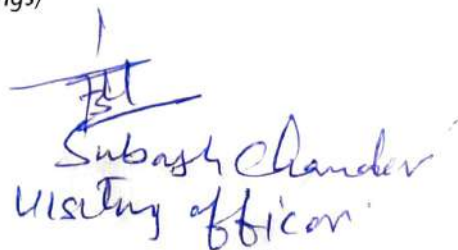 ngs)
Subash Chander
Visiting officer